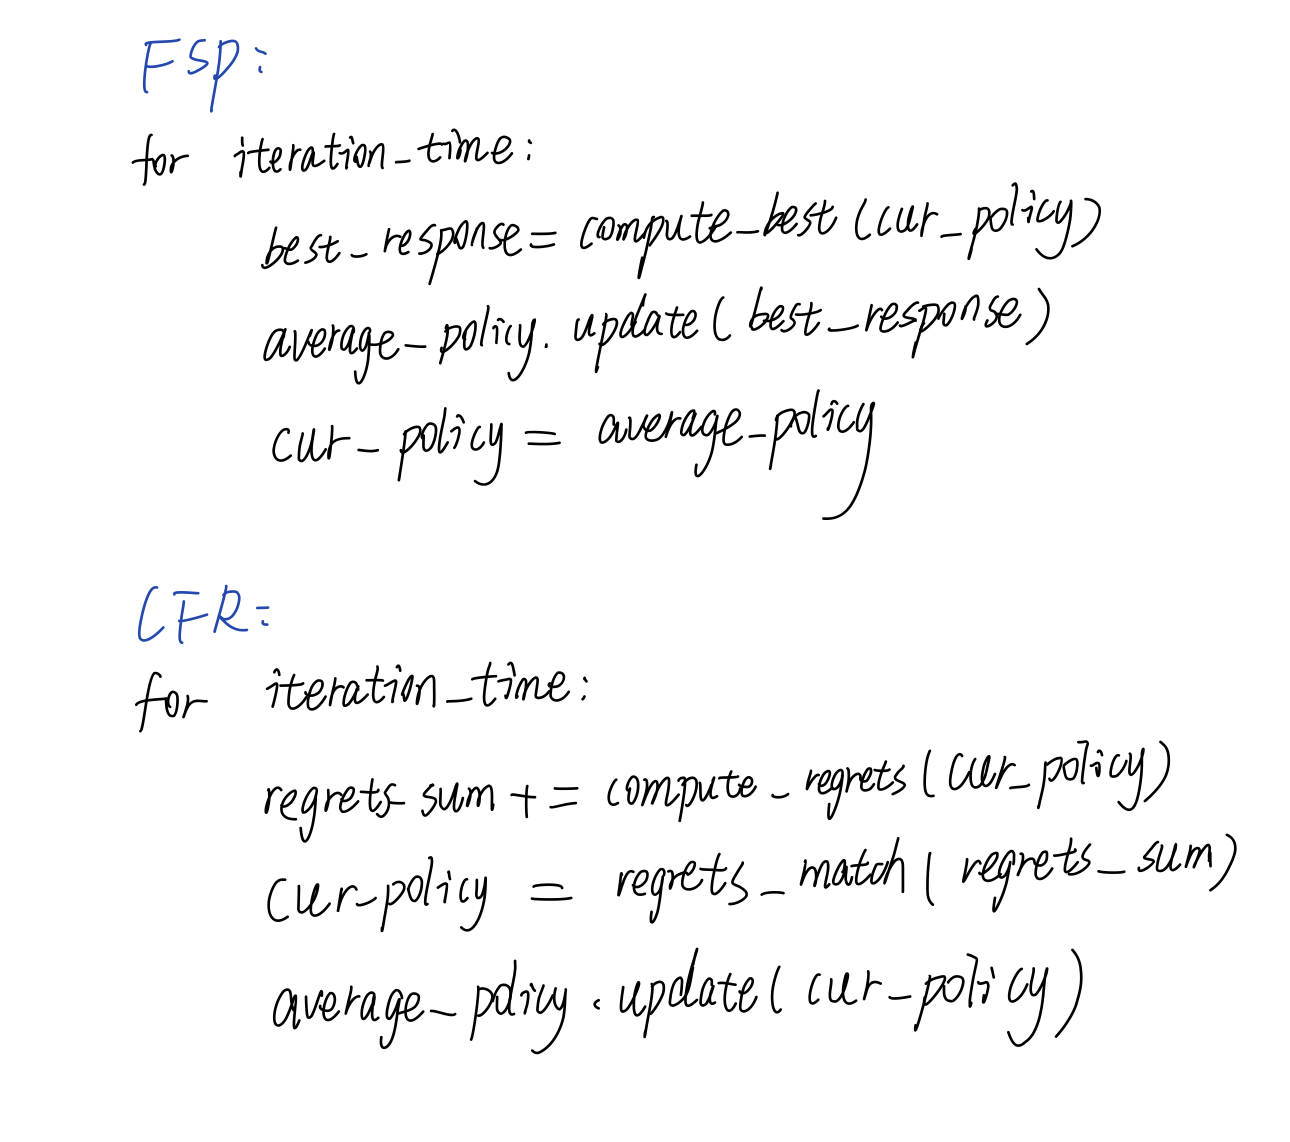 FSP:
for iteration_time:
best_response = compute_best (cur_policy)
average_policy. update( best_response)
cur_policy = average_policy
CFR:
for iteration_time:
regrets_sum += compute_regrets (cur_policy)
cur_policy = regrets_match( regrets_sum)
average_policy. update( cur_policy)